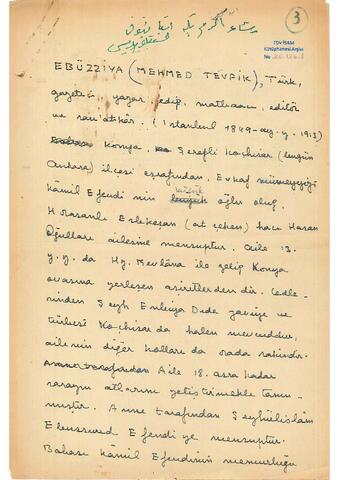 3
TDV İSAM
Kütüphanesi Arşivi
No
EBÜZZİYA (MEHMED TEVFİK), Türk,
gazeteci, yazar, edip, matbaacı, editör
ve san'atkâr. (İstanbul 1849-ay. y. 1913)
Konya, Şerefli Koçhisar (bugün
Ankara) ilçesi eşrafından, Evkaf mümeyyizi
Kâmil Efendi'nin küçük oğlu olup,
Horasanlı Eslekeşan (at çeken) hacı Hasan
Oğulları ailesine mensuptur. Aile 13.
y.y. da Hz. Mevlâna ile gelip Konya
ovasına yerleşen aşiretlerdendir. Cedle-
rinden Şeyh Dede zaviye ve
türbesi Koçhisar'da halen mevcuddur,
ailenin diğer kolları da orada sakindir.
Aile 18. asra kadar
sarayın atlarını yetiştirmekle tanın-
mıştır. Anne tarafından Şeyhülislâm
Ebussuud Efendi'ye mensuptur.
Babası Kâmil Efendinin memurluğu